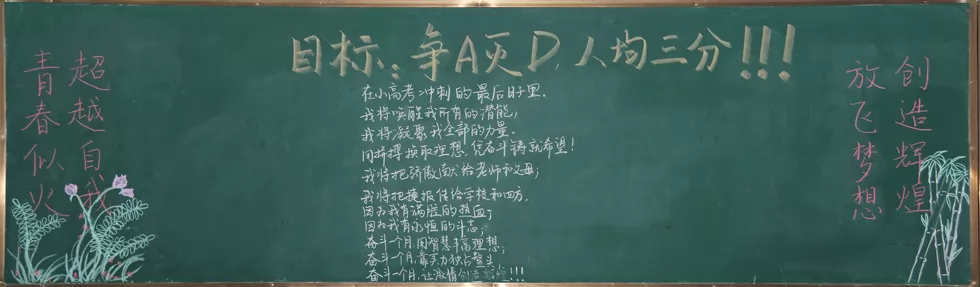 目标：争A灭D，人均三分!!!
超越自我
青春似火
在小高考冲刺的最后日子里，
我将唤醒我所有的潜能，
我将凝聚我全部的力量.
用拼搏换取理想，凭奋斗铸就希望！
我将把骄傲献给老师和父母；
我将把捷报传给学校和四方.
因为我有满腔的热血；
因为我有永恒的斗志；
奋斗一个月，用智慧丰富理想；
奋斗一个月，靠实力独占鳌头；
奋斗一个月，让激情创造辉煌!!!
创造辉煌
放飞梦想